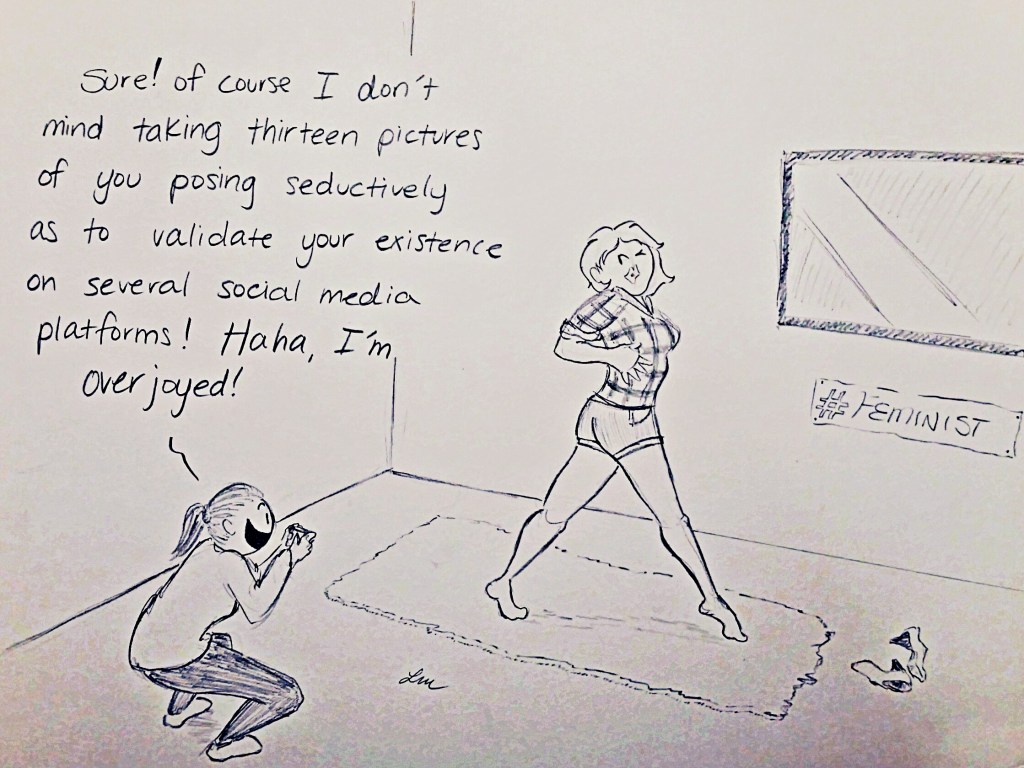 Sure! of course I don't
mind taking thirteen pictures
of you posing seductively
as to validate your existence
on several social media
platforms! Haha, I'm
overjoyed!
# FEMINIST